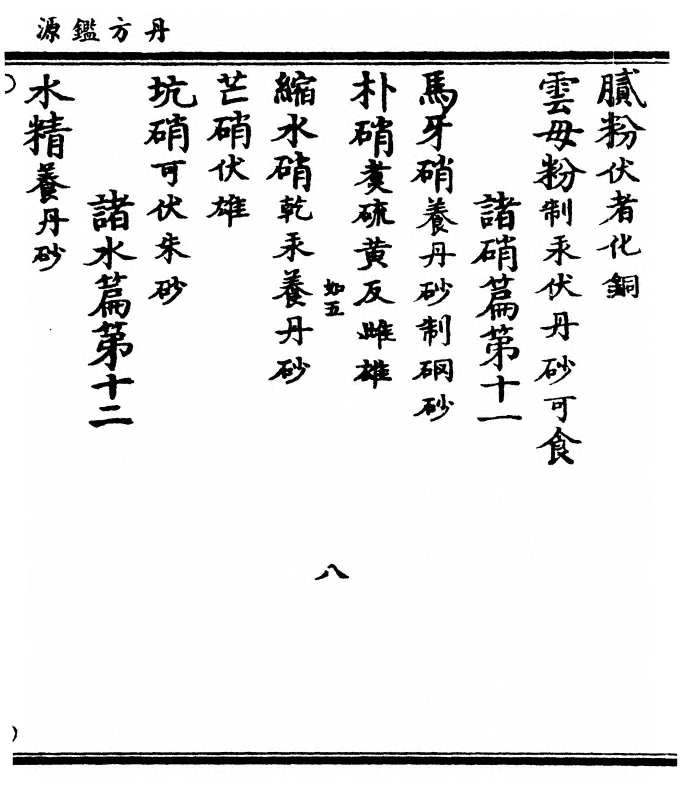 丹方鑑源
膩粉伏者化銅
雲母粉制汞伏丹砂可食
諸硝篇第十一
馬牙硝養丹砂制硇砂
朴硝煑硫黃反雌雄
如五
縮水硝乾汞養丹砂
芒硝伏雄
坑硝可伏朱砂
諸水篇第十二
水精養丹砂
八